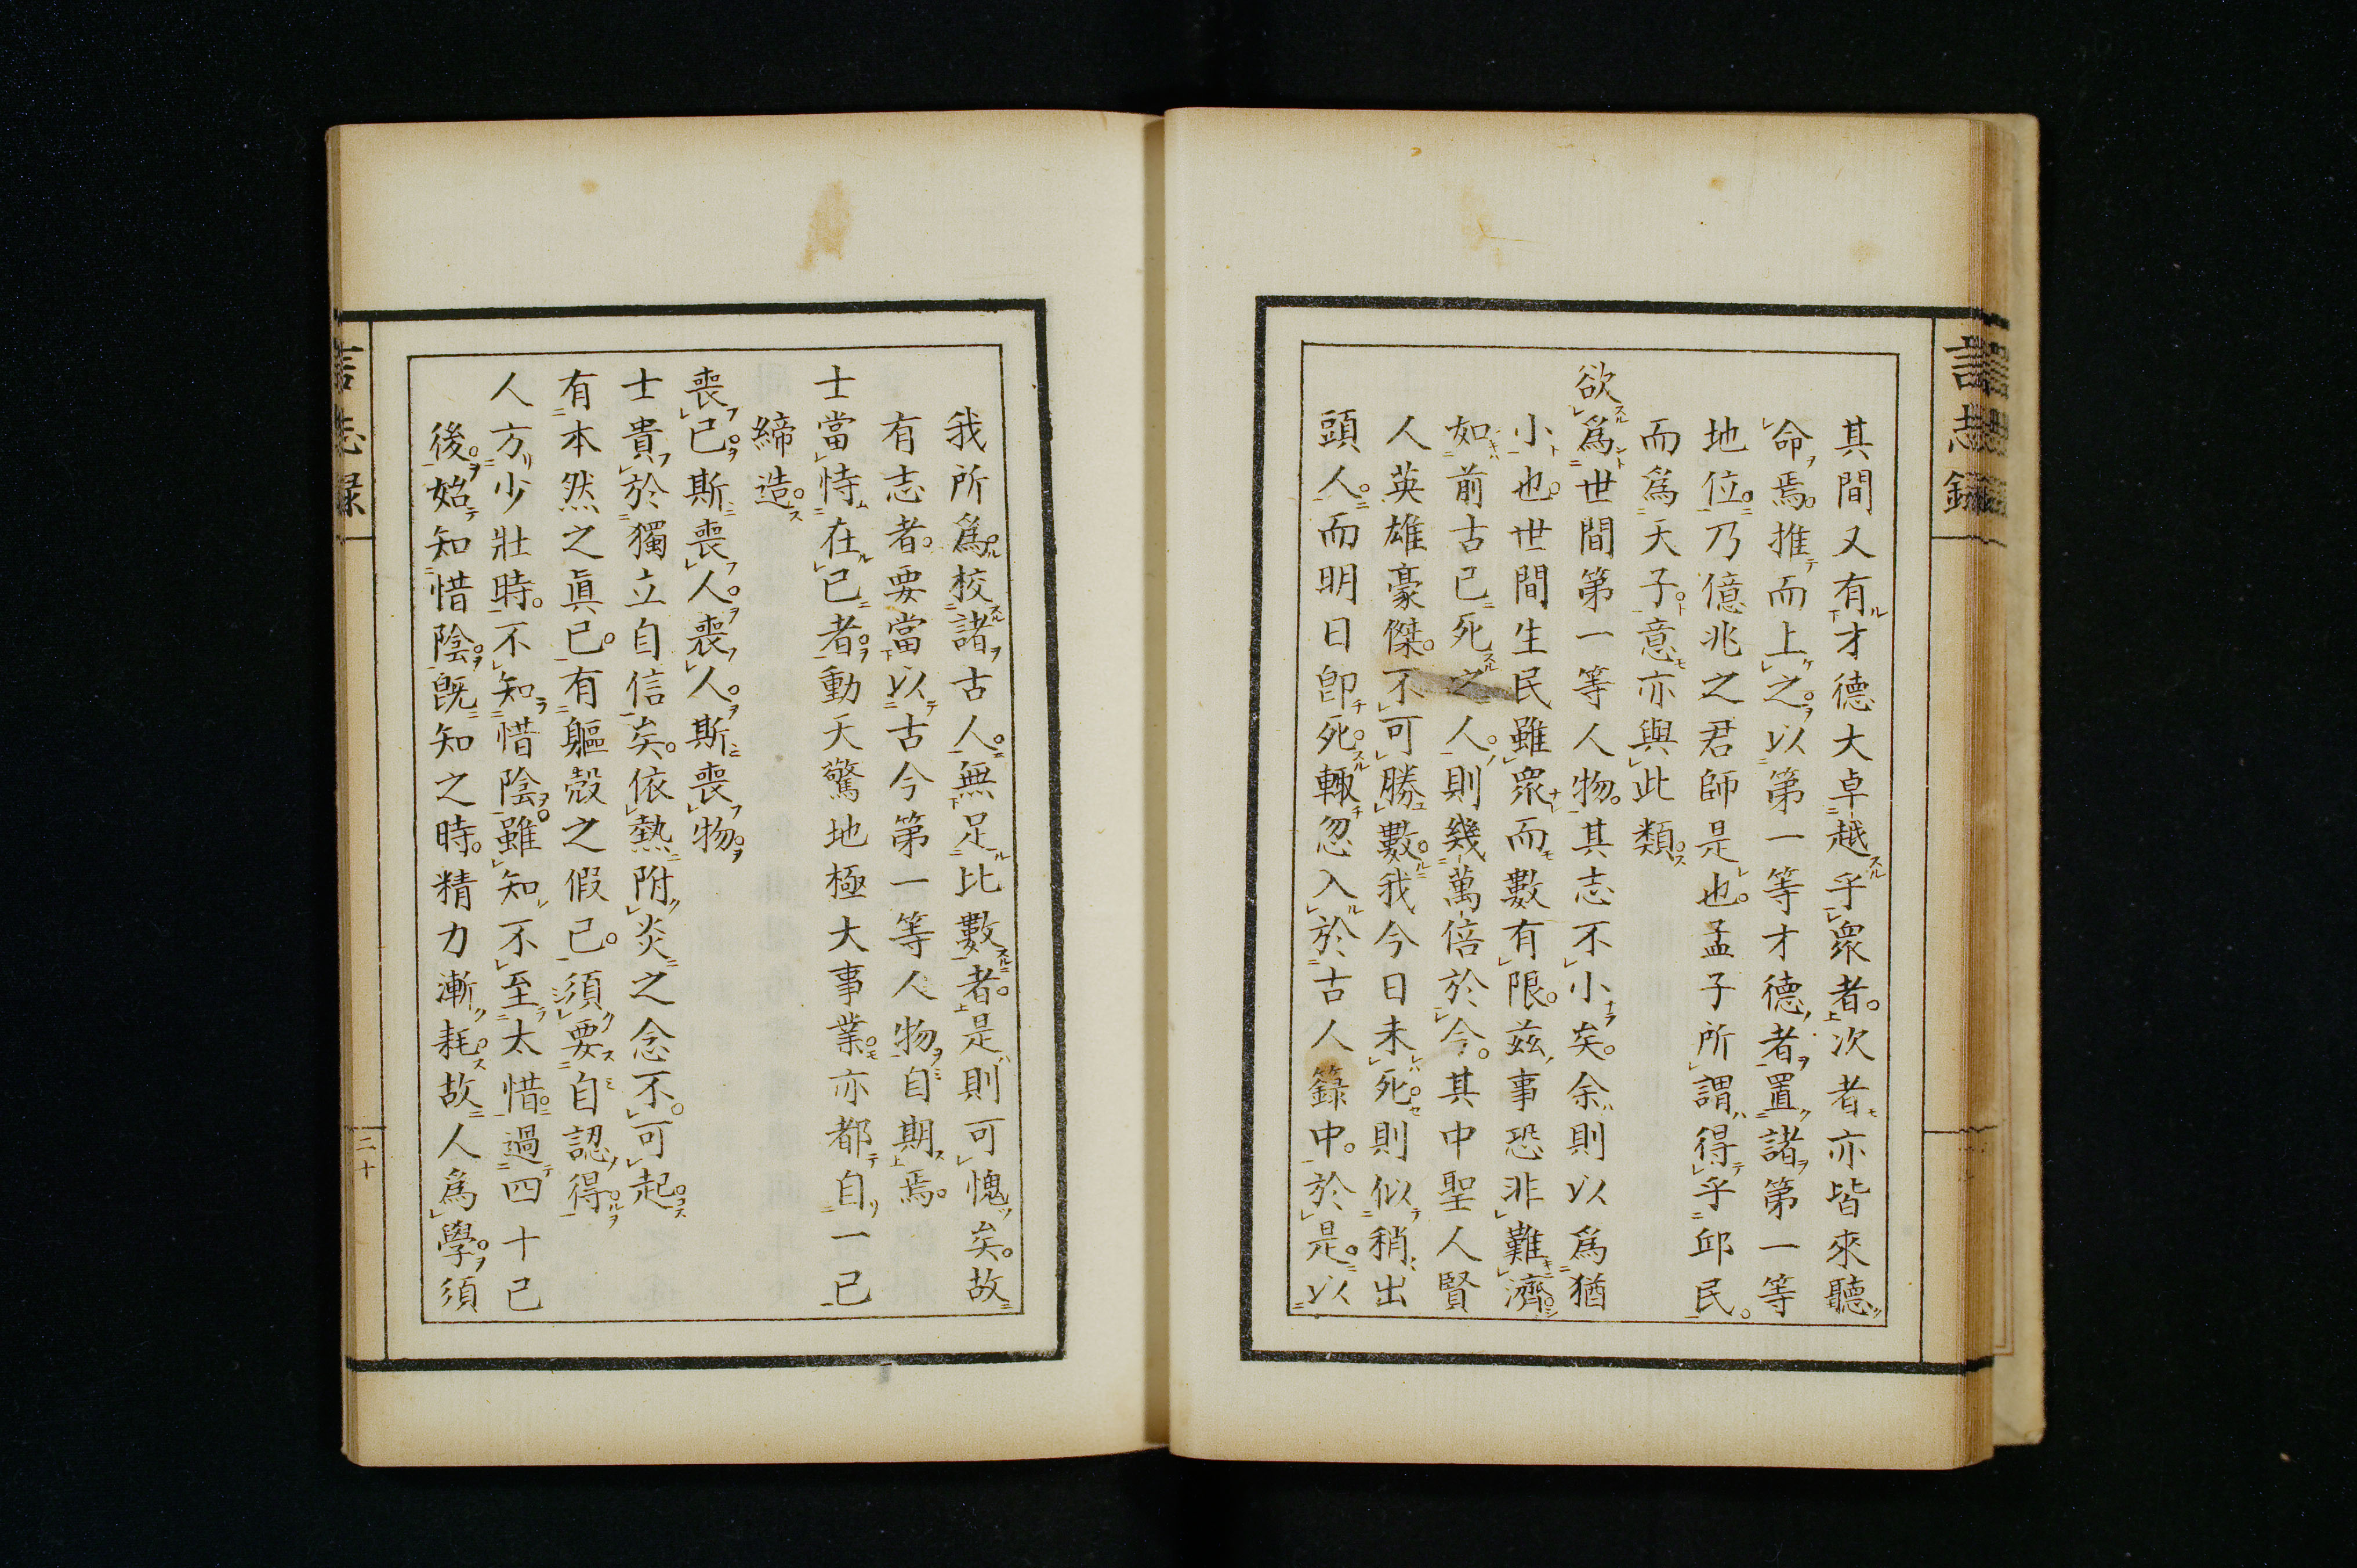 言志錄
其間又有才德大卓越乎衆者。次者亦皆來聽
命焉。推而上之。以第一等才德者置諸第一等
地位。乃億兆之君師是也。孟子所謂得乎邱民。
而爲天子。意亦與此類。
欲爲世間第一等人物。其志不小矣。余則以爲猶
小也。世間生民雖衆而數有限。茲事恐非難濟。
如前古已死之人。則幾萬倍於今。其中聖人賢
人英雄豪傑。不可勝數。我今日未死。則似稍出
頭人。而明日卽死。輒忽入於古人籙中。於是。以
我所爲。校諸古人。無足比數者。是則可愧矣。故
有志者。要當以古今第一等人物自期焉。
士當恃在己者。動天驚地極大事業。亦都自一己
締造。
喪己。斯喪人。喪人。斯喪物。
士貴於獨立自信矣。依熱附炎之念不。可起。
有本然之眞己。有軀殼之假己。須要自認得。
人方少壯時。不知惜陰。雖知不至太惜。過四十已
後。始知惜陰。旣知之時。精力漸耗。故人爲學。須
言志録
二十